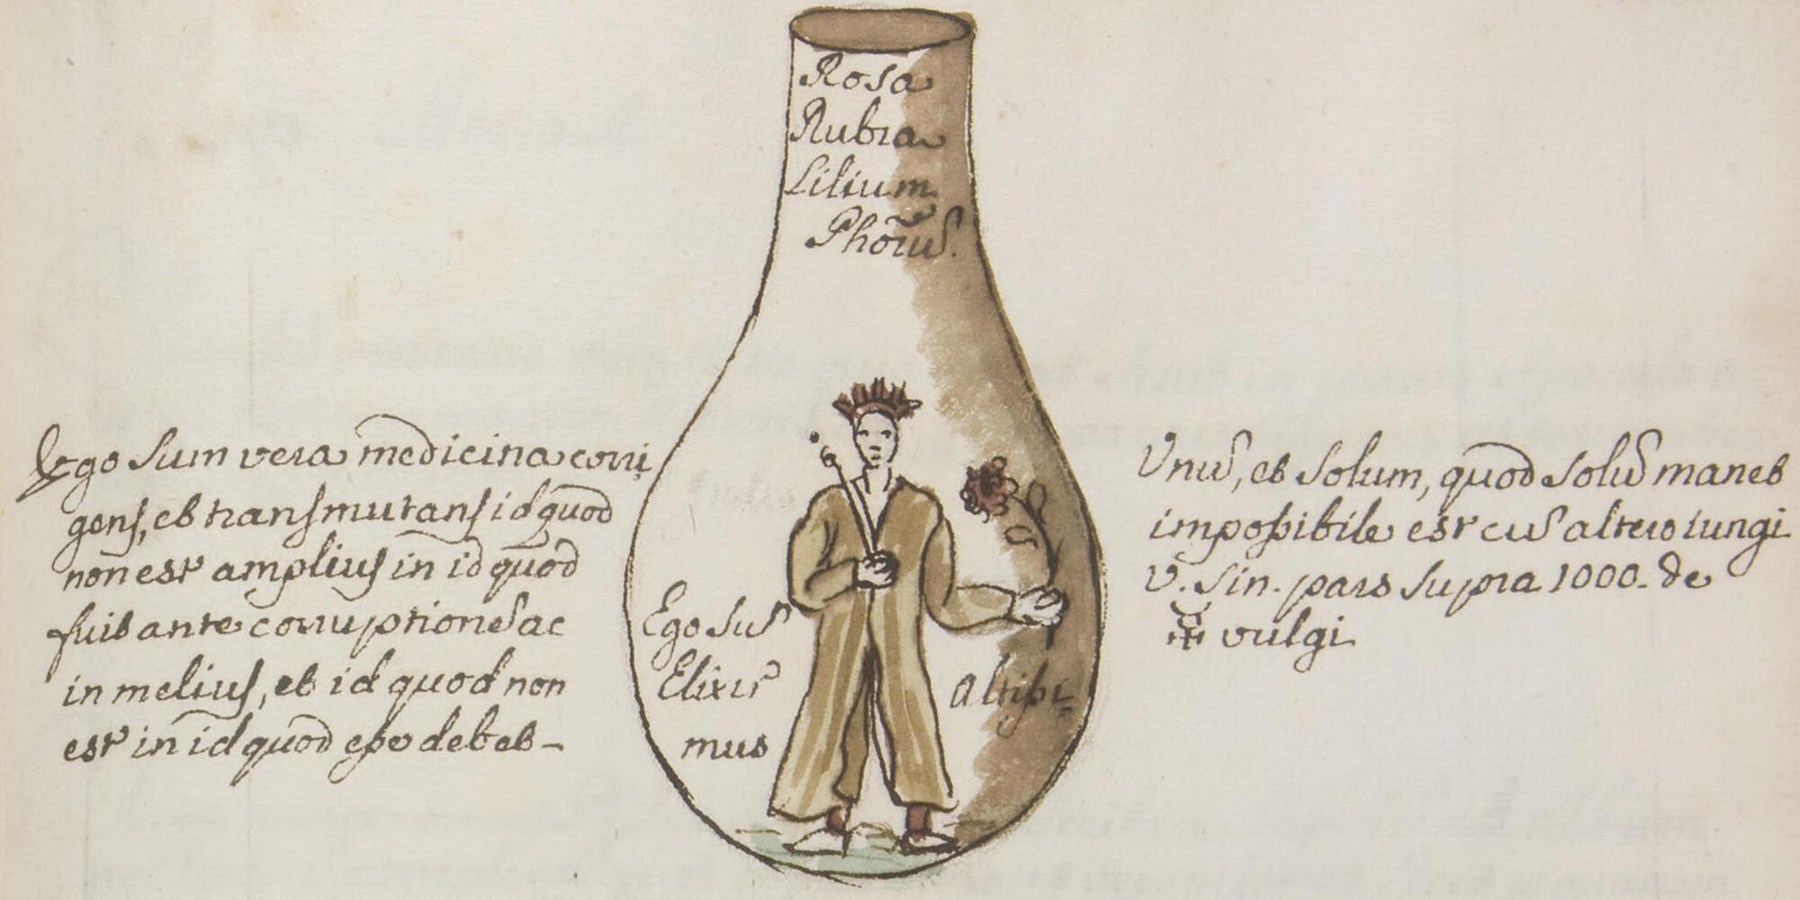 Rosa
Rubia
Lilium
Ego Sum vera medicina corri
gens, et transmutans id quod
non est amplius in id quod
fuit ante corruptionē ac
in melius, et id quod non
est in id quod eße debet-
Ego Sū
Elixir
Altißi
mus
Vnū, et Solum, quod Solū manet
impoßibile est cū altero iungi
V. Sin. pars supra 1000. de
vulgi